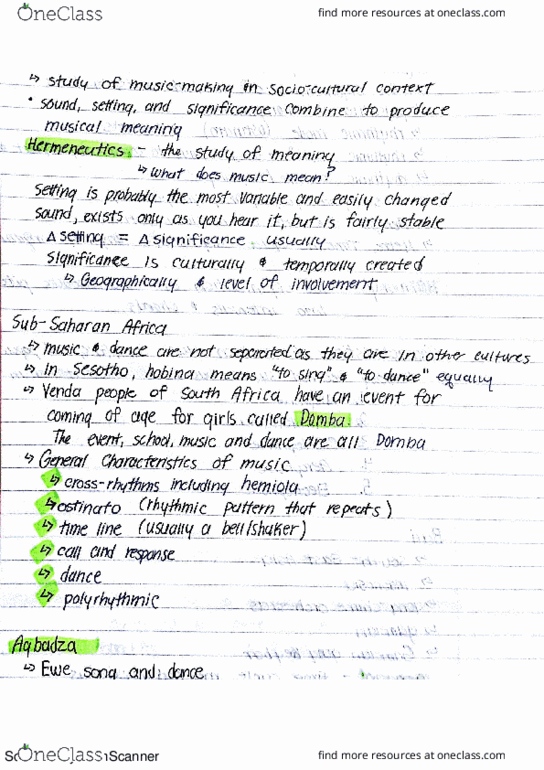 OneClass
find more resources at oneclass.com
↳ study of music-making in socio-cultural context
• sound, setting, and significance combine to produce
musical meaning
Hermeneutics - the study of meaning
↳ what does music mean?
Setting is probably the most variable and easily changed
sound, exists only as you hear it, but is fairly stable
Δ setting = Δ significance usually
Significance is culturally & temporally created
↳ Geographically & level of involvement
Sub-Saharan Africa
↳ music & dance are not separated as they are in other cultures
↳ in Sesotho, hobina means "to sing" & "to dance" equally
↳ Venda people of South Africa have an event for
coming of age for girls called Domba.
The event, school, music and dance are all Domba
↳ General Characteristics of music
↳ cross-rhythms including hemiola
↳ ostinato (rhythmic pattern that repeats)
↳ time line (usually a bell/shaker)
↳ call and response
↳ dance
↳ polyrhythmic
Agbadza
↳ Ewe song and dance
OneClass
Scanner
find more resources at oneclass.com